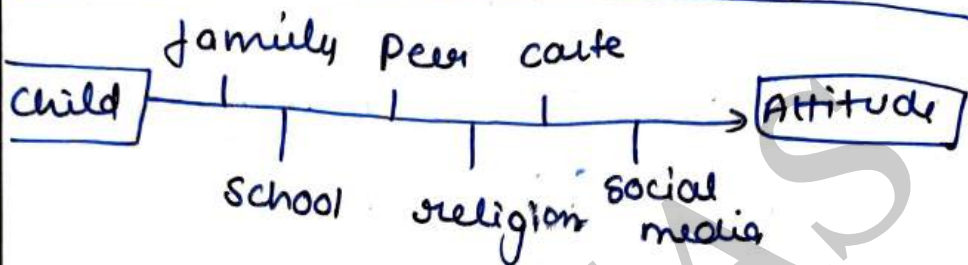 family Peer caste
Child Attitude
school religion social
media